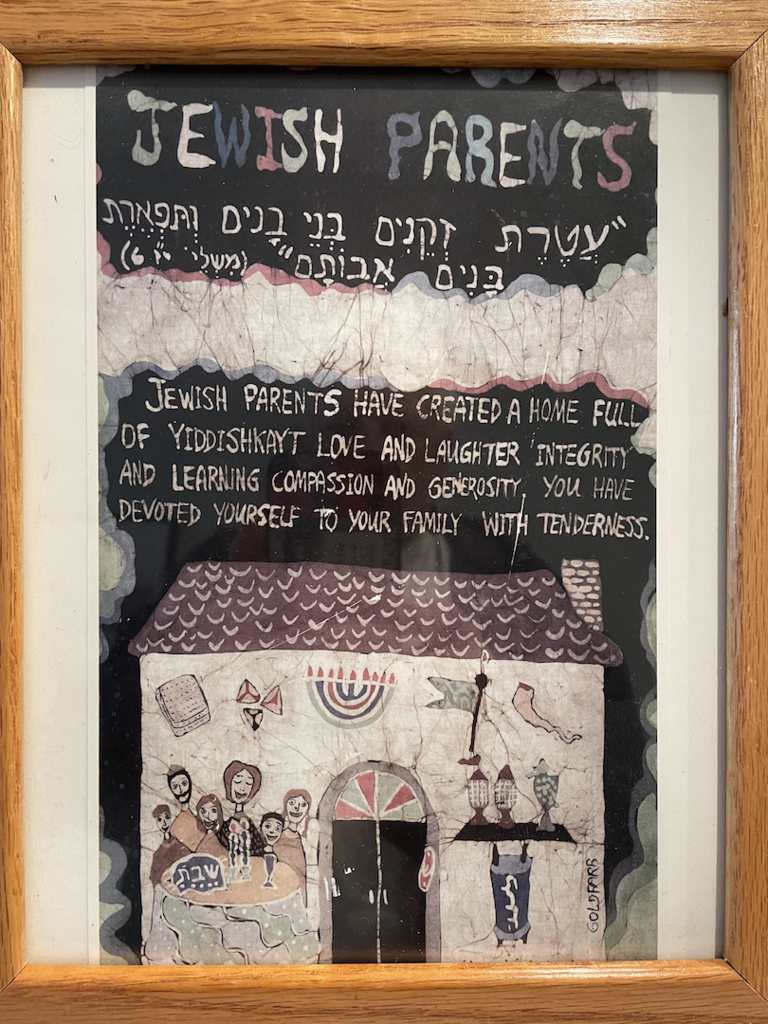 JEWISH PARENTS
"עֲטֶרֶת זְקֵנִים בְּנֵי בָנִים וְתִפְאֶרֶת
בָּנִים אֲבוֹתָם" (מִשְלֵי י"ז 6)
JEWISH PARENTS HAVE CREATED A HOME FULL
OF YIDDISHKAYT LOVE AND LAUGHTER INTEGRITY
AND LEARNING COMPASSION AND GENEROSITY. YOU HAVE
DEVOTED YOURSELF TO YOUR FAMILY WITH TENDERNESS.
שבת
GOLDFARB